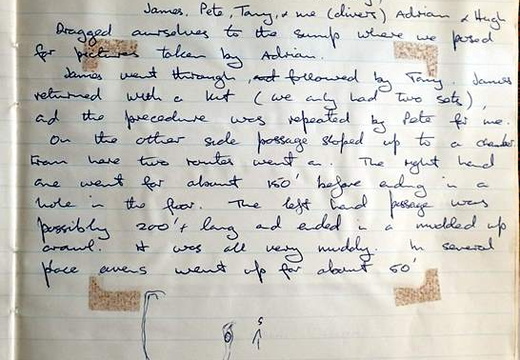 James, Pete, Tany, & me (divers) Adrian & Hugh
Dragged ourselves to the sump where we posed
for pictures taken by Adrian.
James went through, followed by Tany. James
returned with a kit (we only had two sets),
ad the precedure was repeated by Pete for me.
On the other side passage sloped up to a chamber
From here two routes went on. The right hand
one went for about 150' before ending in a
hole in the floor. The left hand passage was
possibly 200'+ long and ended in a mudded up
crawl. It was all very muddy. In several
place avens went up for about 50'